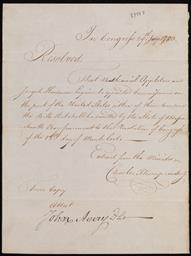 In Congress 29th June 1780
Resolved,
That Nathaniel Appleton and
Joseph Henderson Esquires be appointed
on
the part of the United States either of them to endorse
the bills that shall be emitted by the State of
Massachusetts
to the Resolution of Congress
of the 18th day of March last.
Extract from the Minutes
Charles Thomson Secy
A true Copy
Attest
John Avery